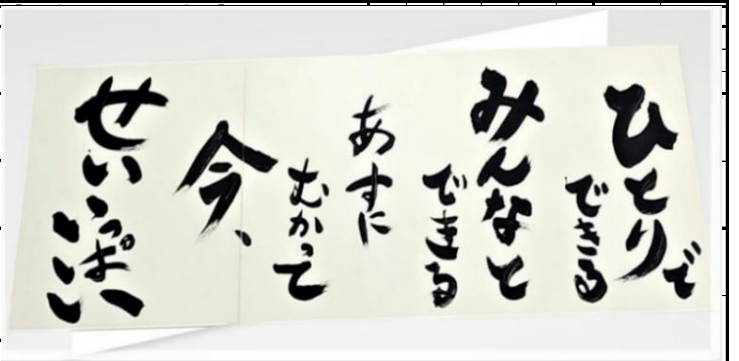 ひとりで
できる
みんなと
できる
あすに
むかって
今、
せいいっぱい